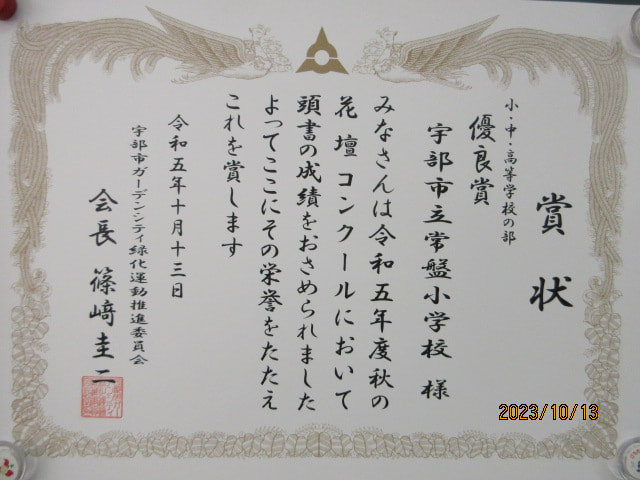 賞状
小・中・高等学校の部
優良賞
宇部市立常盤小学校 様
みなさんは令和五年度秋の
花壇コンクールにおいて
頭書の成績をおさめられました
よってここにその栄誉をたたえ
これを賞します
令和五年十月十三日
宇部市ガーデンシティ緑化運動推進委員会
会長 篠﨑圭二
2023/10/13